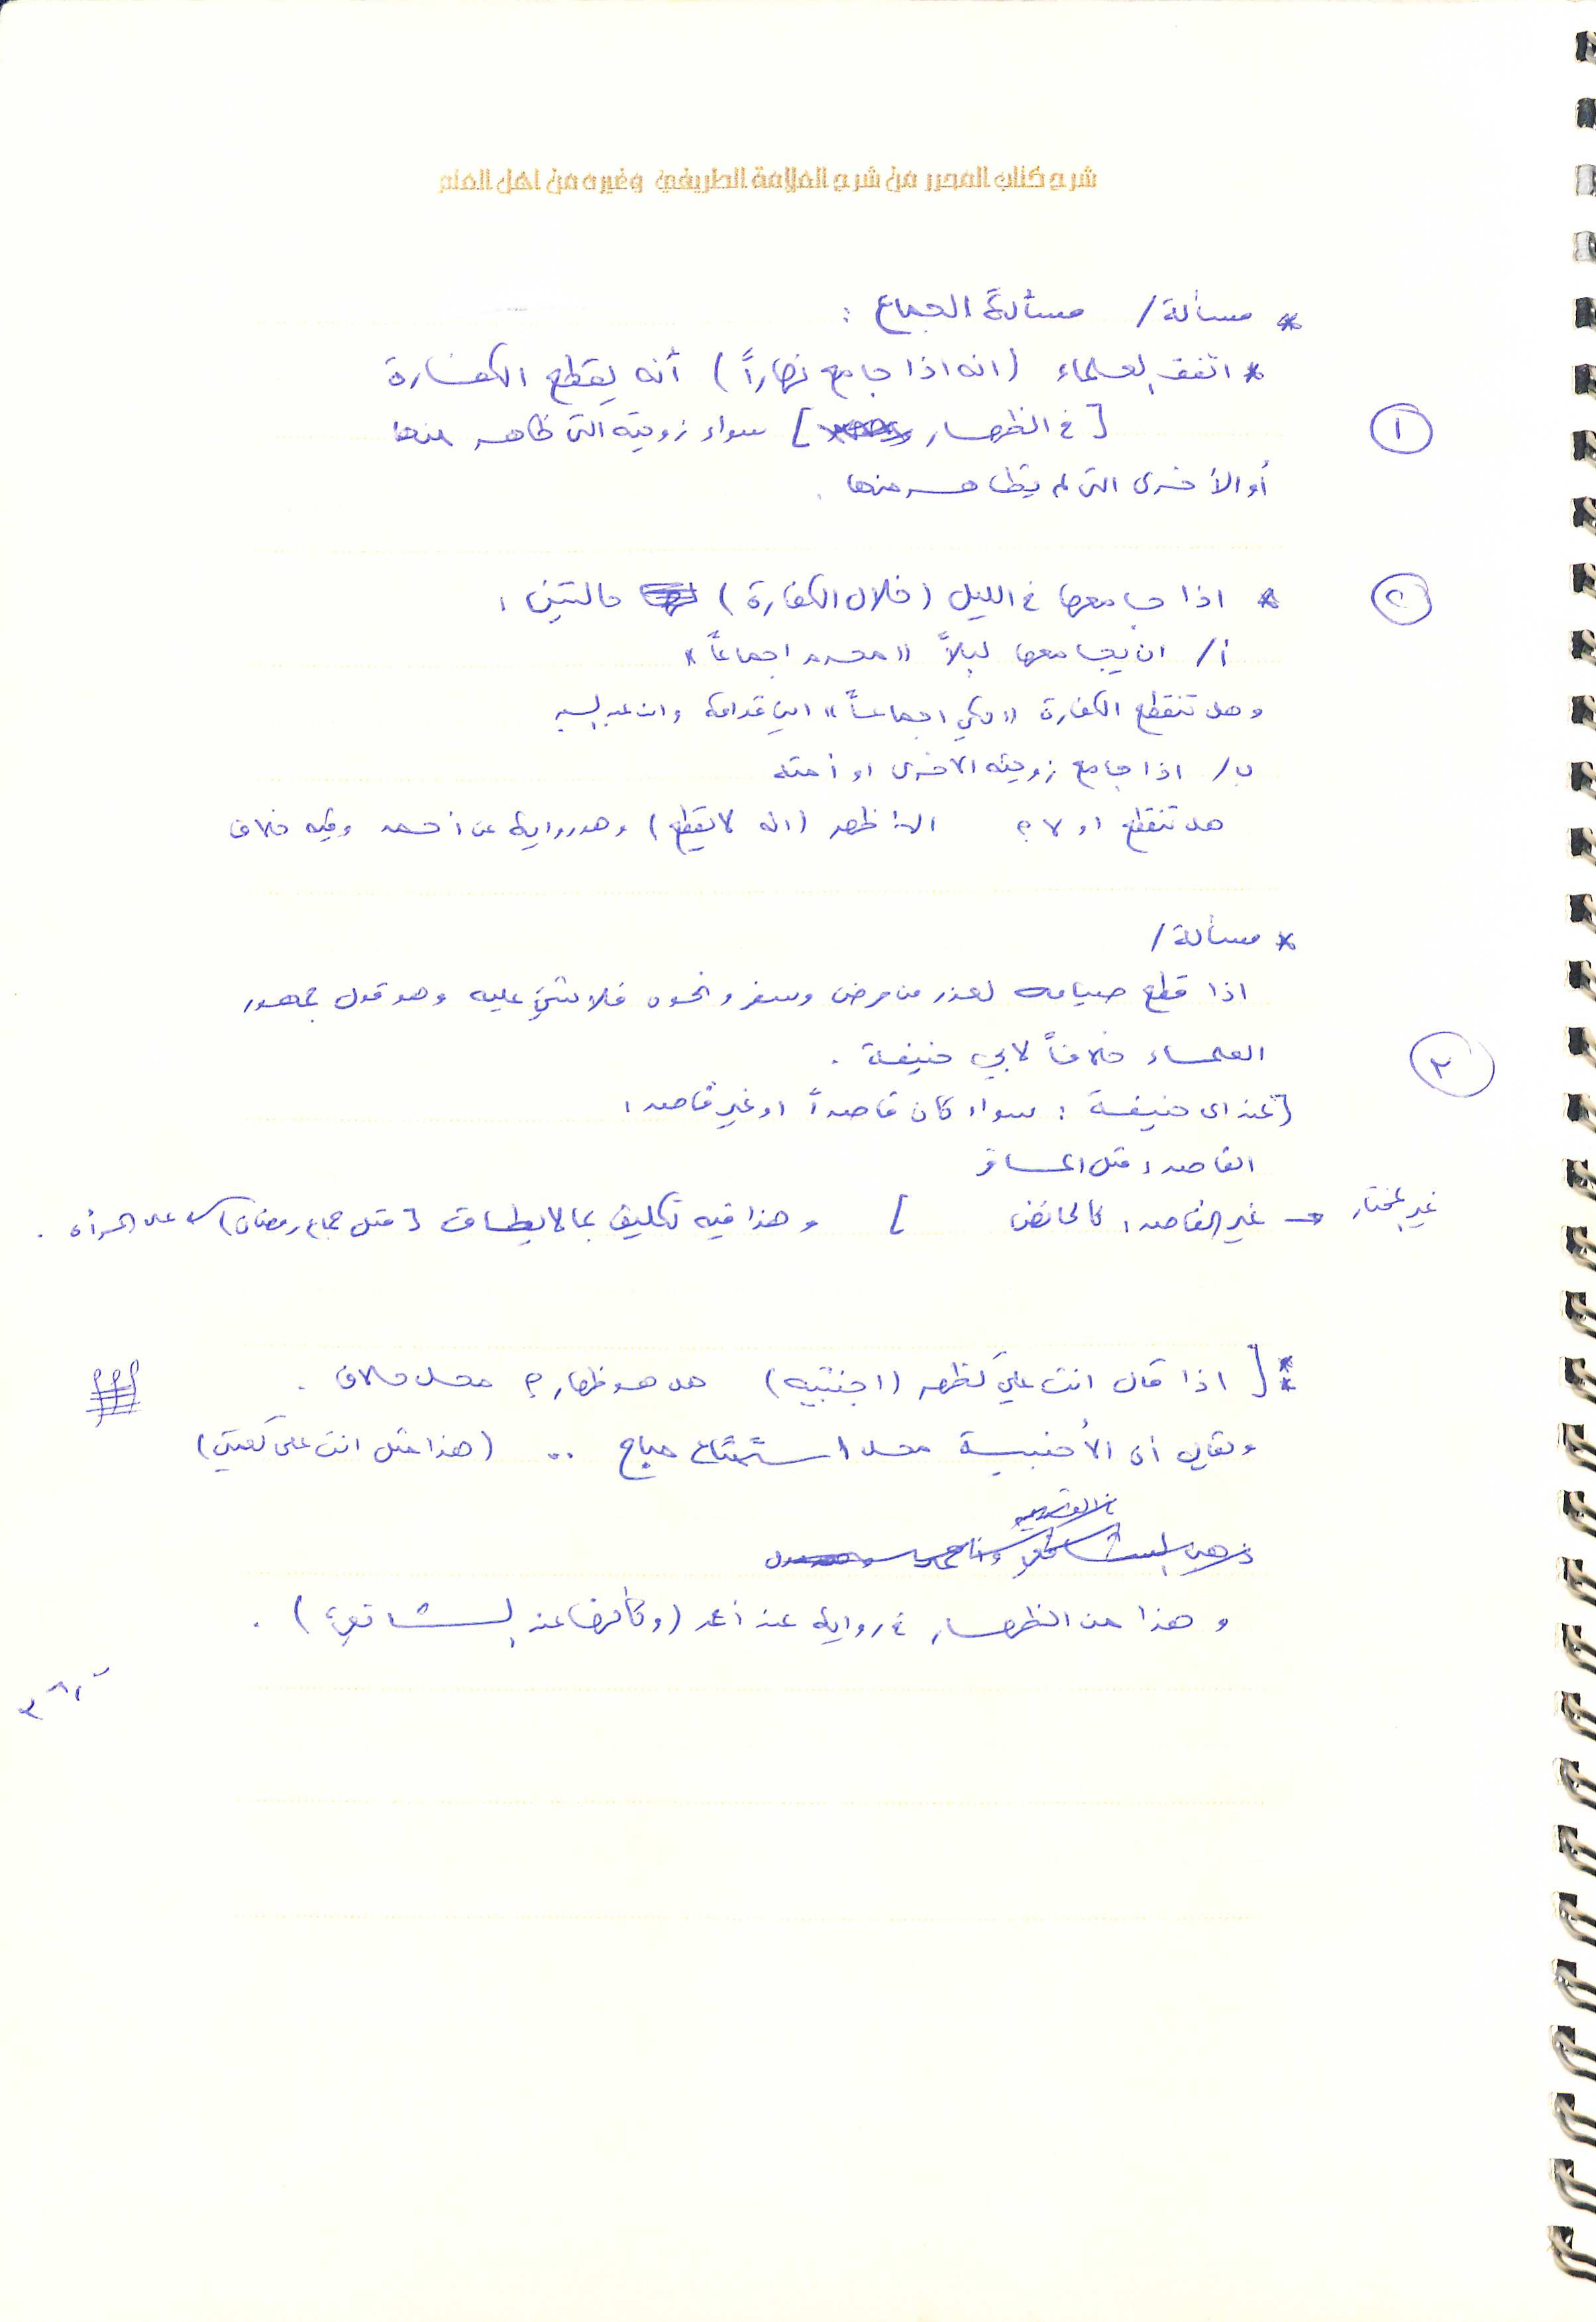 شرح كتاب المحرر من شرح العلامة الطريفي وغيره من اهل العلم
* مسألة / مسألة الجماع :
* اتفق العلماء (انه اذا جامع نهاراً) أنه يقطع الكفارة
١ [في الظهار] سواء زوجته التي ظاهر منها
أو الأخرى التي لم يظاهر منها .
٢ * اذا جامعها في الليل (خلال الكفارة) حالتين :
أ/ ان يجامعها ليلاً "محرم اجماعاً"
وهل تنقطع الكفارة "حكي اجماعاً" ابن قدامة وابن عبدالبر
ب/ اذا جامع زوجته الاخرى او أمته
هل تنقطع او لا ؟ الأظهر (انه لا يقطع) وهو رواية عن أحمد وفيه خلاف
* مسألة /
اذا قطع صيامه لعذر من مرض وسفر ونحوه فلا شيء عليه وهو قول جمهور
٣ العلماء خلافاً لابي حنيفة .
[عند ابي حنيفة : سواء كان قاصداً او غير قاصد :
القاصد : مثل المسافر
غير المختار → غير القاصد : كالحائض ] وهذا فيه تكليف بما لا يطاق [مثل جماع رمضان) على المرأة .
[ اذا قال انت علي كظهر (اجنبيه) هل هو ظهار ؟ محل خلاف .
ويقال أن الأجنبية محل استمتاع مباح .. (هذا مثل انت علي كعمتي)
في القديم
وهذا من الظهار في رواية عند أحمد (وظاهرها عند الشافعي) .